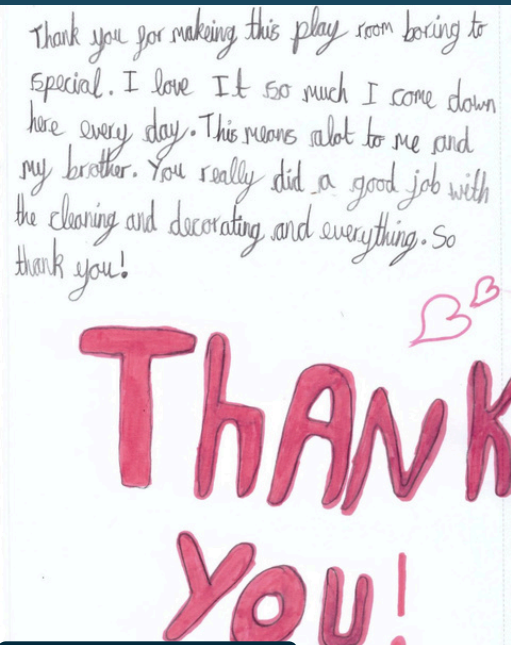 Thank you for makeing this play room boring to
special. I love It so much I come down
here every day. This means alot to me and
my brother. You really did a good job with
the cleaning and decorating and everything. So
thank you!
THANK
YOU!